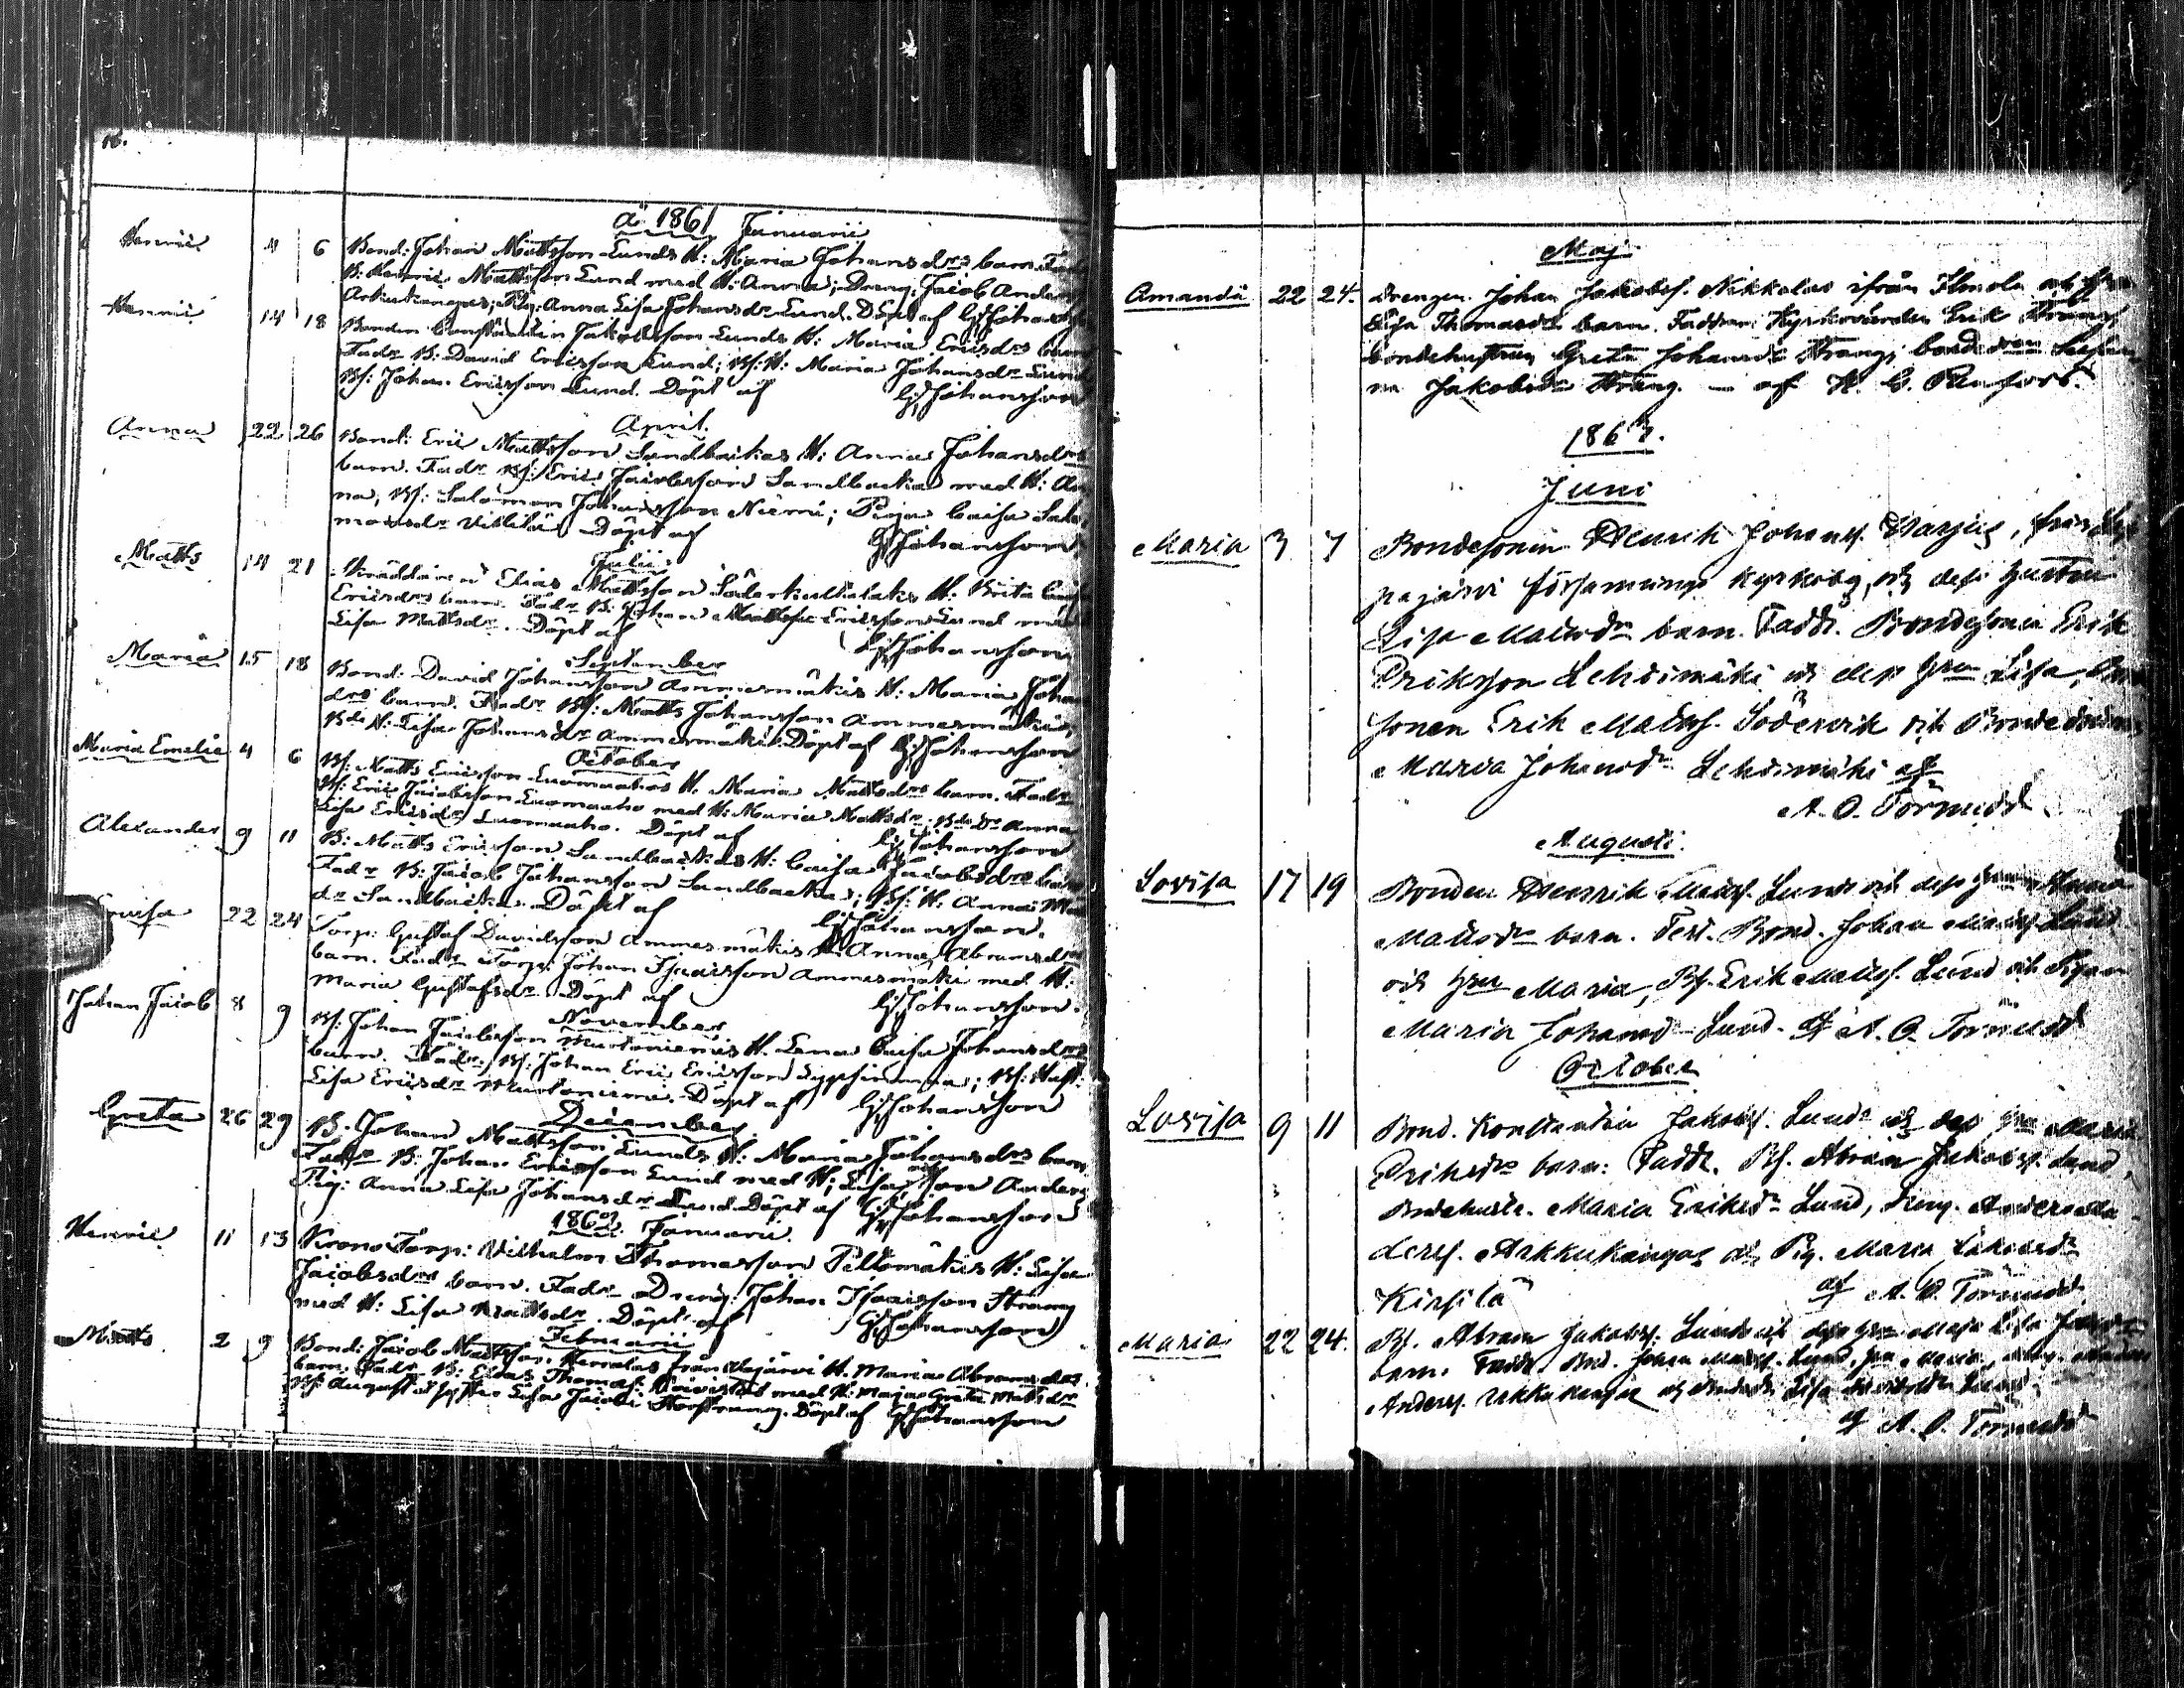 16.
a: 1861 Januarii
Henric 4 6 Bond: Johan Mattsson Lunds H: Maria Johansdrs barn. Fadr
B: Henric Mattsson Lund med H: Anna; Dreng: Jacob Anders
Arkukangas; Pig: Anna Lisa Johansdr Lund. Döpt af GJohansson
Henric 14 18 Bonden Constantin Jakobsson Lunds H: Maria Ericsdrs barn
Fadr B: David Ericsson Lund; Bs: H: Maria Johansdr Lund
Bs: Johan Ericsson Lund. Döpt af GJohansson
April.
Anna 22 26 Bond: Eric Mattsson Sandbackas H: Anna Johansdrs
barn. Fadr Bs: Eric Jacobsson Sandbacka med H: An
na; Bs: Salomon Johansson Niemi; Pigan Caisa Salo
monsdr Döpt af GJohansson
Julii
Matts 14 21 Skräddaren Elias Mattsson H: Brita Caisa
Ericsdrs barn. Fadr B: Johan Ericsson Lund med
Lisa Mattsdr. Döpt af GJohansson
September
Maria 15 18 Bond: David Johansson Ammesmäkis H: Maria Johans
drs barn. Fadr Bs: Matts Johansson Ammesmäki;
Bds H: Lisa Johansdr Ammesmäki. Döpt af GJohansson
October
Maria Emelie 4 6 Bs: Matts Ericsson Luomaahos H. Maria Mattsdrs barn. Fadr
Bs: Eric Jacobsson Luomaaho med H: Maria Mattsdr; Bds Dr Anna
Lisa Ericsdr Luomaaho. Döpt af GJohansson
Alexander 9 11 B: Matts Ericsson Sandbackas H: Caisa Jacobsdrs barn
Fadr B: Jacob Johansson Sandbacka; Bs: H. Anna Matts
dr Sandbacka. Döpt af GJohansson.
22 24 Torp: Gustaf Davidsson Ammesmäkis H: Anna Abramsdrs
barn. Fadr Torp: Johan Isacsson Ammesmäki med H:
Maria Gustafsdr. Döpt af GJohansson.
November
Johan Jacob 8 9 Bs: Johan Jacobsson Murtoniemis H. Lena Caisa Johansdrs
barn. Fadr, Bs: Johan Eric Ericsson; Bs: Hust:
Lisa Ericsdr Murtoniemi. Döpt af GJohansson
December
Greta 26 29 B. Johan Mattsson Lunds H: Maria Johansdrs barn
Fadr B: Johan Ericsson Lund med H: Lisa; Anders
Pig: Anna Lisa Johansdr Lund. Döpt af GJohansson
1862. Januarii.
Henric 11 13 Krono Torp: Vilhelm Thomasson Peltomäkis H: Lisa
Jacobsdrs barn. Fadr Dreng: Johan Isacsson Strang
med H: Lisa Mattsdr. Döpt af GJohansson
Februarii
Matts 2 9 Bond: Jacob Mattsson från Alajärvi H. Maria Abramsdrs
barn. Fadr B: Elias Thomass: med H: Maja Greta Mattsdr
Bs: August Lisa Jacobs: Döpt af GJohansson
Maj
Amanda 22 24. Drengen Johan Jakobss. Nikkolas ifrån Ilmola och
Lisa Thomasdrs barn. Faddrar: Kyrkovärden Erik Strang
bondehustrun Greta Johansdr Strang; bondedren
na Jakobsdr Strang. — af
1863.
Juni
Maria 3 7 Bondesonen Henrik Johanss. Harjus, från
pajärvi församlings kyrkoby, och dess hustru
Lisa Mattsdrs barn. Faddr. Bondesonen Erik
Eriksson Lehdimäki och dess hru Lisa,
sonen Erik Mattss. Södervik och Bondedottren
Maria Johansdr Lehdimäki af
A. O. Törnudd
Augusti.
Lovisa 17 19 Bonden Henrik Mattss. Lunds och dess hru Anna
Mattsdrs barn. Test. Bond. Johan Mattss. Lund
och hru Maria, Bs. Erik Mattss. Lund och Pigan
Maria Johansdr Lund. af A. O. Törnudd
October
Lovisa 9 11 Bond. Konstantin Jakobss. Lunds och dess hru Maria
Eriksdrs barn: Faddr. Bs. Abram Jakobss. Lund,
Bondehustr. Maria Eriksdr Lund, dreng. Anders An
derss. Arkkukangas och Pig. Maria Jakobsdr
Kirsilä af A. O. Törnudd
Maria 22 24. Bs. Abram Jakobss. Lunds och dess hru Maja Lisa
barn. Faddr. Bond. Johan Mattss. Lund, hru Maria, dreng. Anders
Anderss. Arkkukangas och Lisa Lund.
af A. O. Törnudd